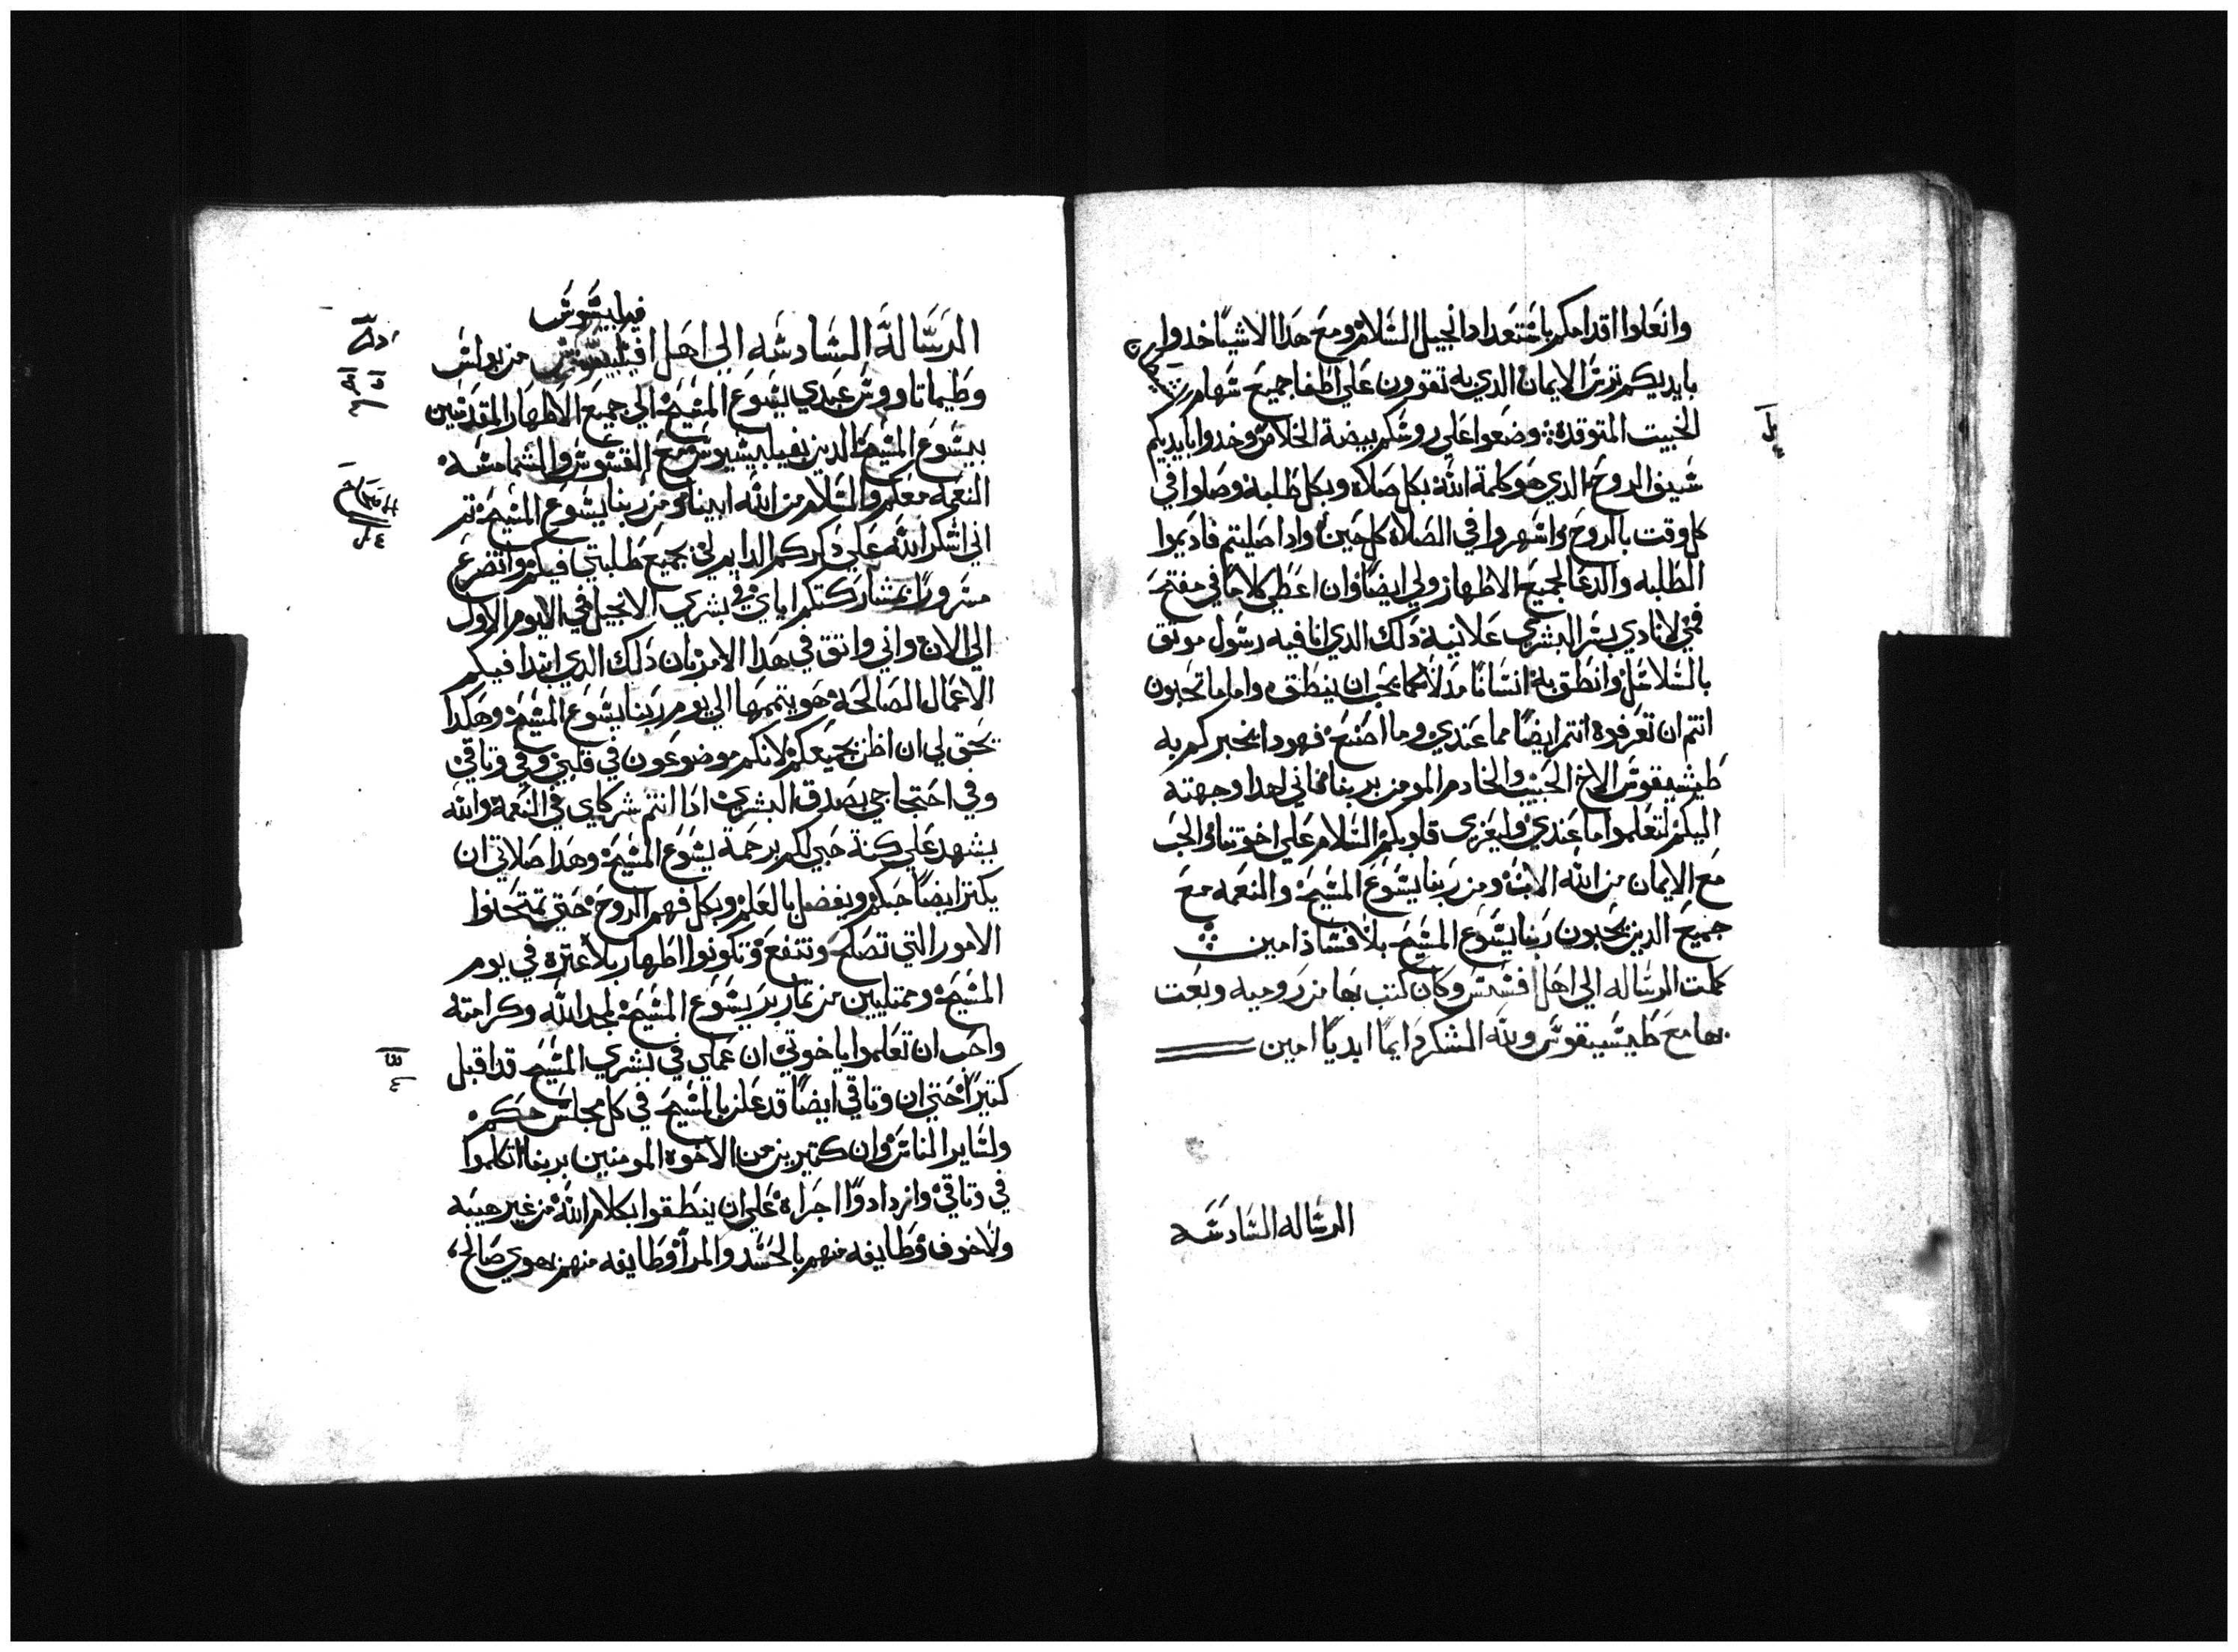 وانعلوا اقدامكم باستعداد انجيل السلام ومع هدا الاشيا خدوا
بايديكم ترس الايمان الدي به تقوون علي اطفا جميع سهام
الخبيت المتوقدة وضعوا علي روسكم بيضة الخلاص وخدوا بايديكم
سيف الروح الدي هو كلمة الله بكل صلاه وبكل طلبة وصلوا في
كل وقت بالروح واسهروا في الصلاة كل حين وادا صليتم فاديموا
الطلبه والدعا لجميع الاطهار ولي ايضا وان اعطي كلاما في مفتح
فمي لانادي بسر البشري علانية دلك الدي انا فيه رسول موتق
بالسلاسل وانطق به انسانا مدلا كما يجب ان ينطق واما ما تحبون
انتم ان تعرفوه انتم ايضا مما عندي وما اصنع فهودا يخبركم به
طيشيقوس الاخ الحبيب والخادم المومن بربنا فاني لهدا وجهته
اليكم لتعلموا ما عندي وليعزي قلوبكم السلام علي اخوتنا في الحب
مع الايمان من الله الاب ومن ربنا يسوع المسيح والنعمه مع
جميع الدين يحبون ربنا يسوع المسيح بلا فساد امين
كملت الرساله الي اهل افسس وكان كتب بها من روميه وبعت
بها مع طيشيقوس ولله الشكر دايما ابديا امين
الرساله السادسه
فيلبسيوس
الرسالة السادسه الي اهل من بولس
وطيماتاووس عبدي يسوع المسيح الي جميع الاطهار المقدسين
بيسوع المسيح الدين بفيلبسيوس مع القسوس والشمامسة
النعمه معكم والسلام من الله ابينا ومن ربنا يسوع المسيح تم
اني اشكر الله علي دكركم الدايم لي بجميع طلبتي فيكم واتضرع
مسرورا بمشاركتكم اياي في بشري الانجيل في اليوم الاول
الي الان واني واتق في هدا الامر بان دلك الدي ابتدا فيكم
الاعمال الصالحة هو يتممها الي يوم ربنا يسوع المسيح وهكدا
يحق لي ان اظن بجميعكم لانكم موضوعون في قلبي وفي وتاقي
وفي احتجاجي بصدق البشري ادا انتم شركاي في النعمة والله
يشهد علي كنة حبي لكم برحمة يسوع المسيح وهدا صلاتي ان
يكتر ايضا حبكم ويفضل بالعلم وبكل فهم الروح حتي تمتحنوا
الامور التي تصلح وتنفع وتكونوا اطهار بلا عتره في يوم
المسيح وممتليين من تمار بر يسوع المسيح لمجد الله وكرامته
واحب ان تعلموا يا خوتي ان عملي في بشري المسيح قد اقبل
كتيرا حتي ان وتاقي ايضا قد علن بالمسيح في كل مجلس حكم
ولساير الناس وان كتيرين من الاخوه المومنين بربنا اتكلموا
في وتاقي وازدادوا اجراة علي ان ينطقوا بكلام الله من غير هيبه
ولا خوف وطايفه منهم بالحسد والمرا وطايفه منهم بهوي صالح